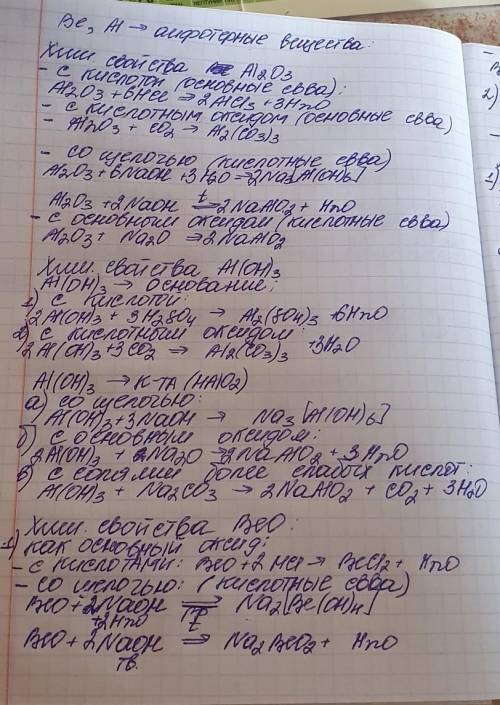 Be, Al → амфотерные вещества:
Хим. свойства Al2O3
- с кислотой (основные свва);
Al2O3 + 6HCl → 2AlCl3 + 3H2O
- с кислотным оксидом (основные свва)
- Al2O3 + CO2 → Al2(CO3)3
- со щелочью (кислотные свва)
Al2O3 + 6NaOH + 3H2O ⇒ 2Na3[Al(OH)6]
t
Al2O3 + 2NaOH ⇒ 2NaAlO2 + H2O
- с основным оксидом (кислотные свва)
Al2O3 + Na2O ⇒ 2NaAlO2
Хим. свойства Al(OH)3
Al(OH)3 → основание;
1) с кислотой:
2Al(OH)3 + 3H2SO4 → Al2(SO4)3 + 6H2O
2) с кислотным оксидом:
2Al(OH)3 + 3CO2 ⇒ Al2(CO3)3 + 3H2O
Al(OH)3 → к-та (HAlO2)
а) со щелочью:
Al(OH)3 + 3NaOH → Na3[Al(OH)6]
б) с основным оксидом:
2Al(OH)3 + Na2O → 2NaAlO2 + 3H2O
в) с солями более слабых кислот:
Al(OH)3 + Na2CO3 → 2NaAlO2 + CO2 + 3H2O
Хим. свойства BeO:
1) как основный оксид;
- с кислотами: BeO + 2HCl → BeCl2 + H2O
- со щелочью: (кислотные свва)
BeO + 2NaOH ⇒ Na2[Be(OH)4]
+2H2O
t
BeO + 2NaOH ⇒ Na2BeO2 + H2O
тв.